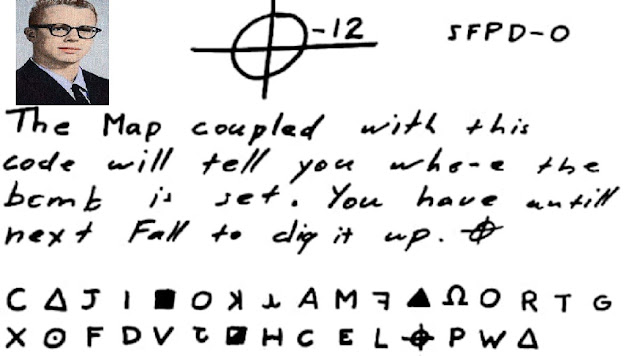 ⌖-12 SFPD-0
The Map coupled with this
code will tell you where the
bomb is set. You have untill
next Fall to dig it up. ⌖
C Δ J I ■ O ʞ ⅄ A M ꟻ ▲ Ω O R T G
X ⊙ F D V ㄛ ◪ H C E L ⌖ P W Δ